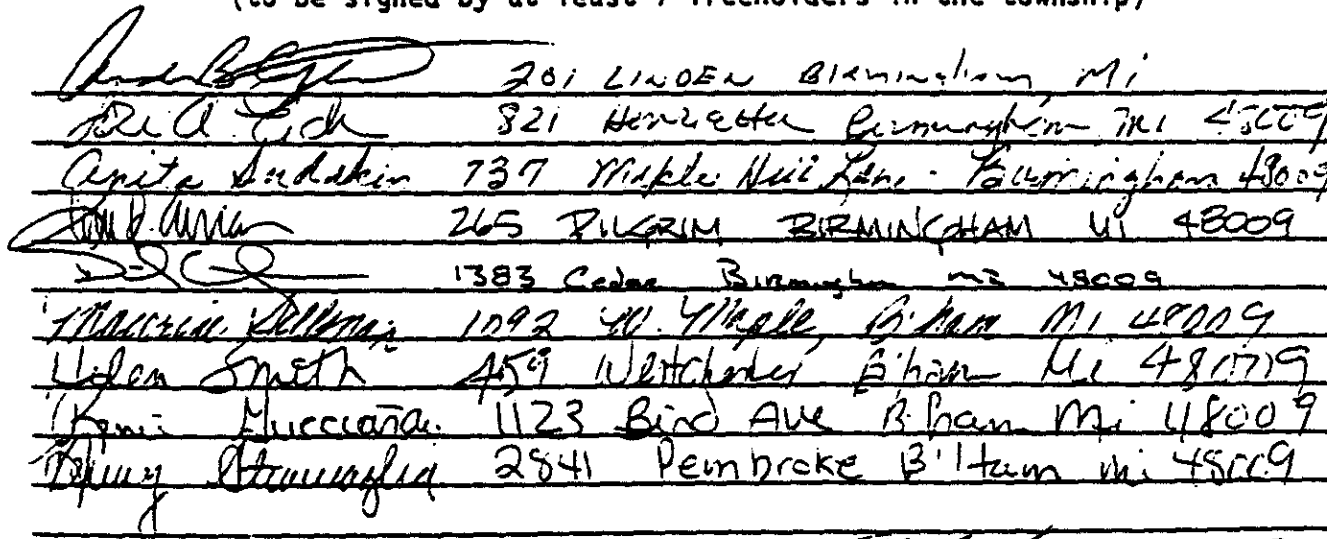 (to be signed by at least 7 freeholders in the township)
201 LINDEN Birmingham, Mi
821 Henrietta Birmingham Mi 48009
Anita Sudakin 737 Maple Hill Lane - Birmingham 48009
265 PILGRIM BIRMINGHAM MI 48009
1383 Cedar Birmingham MI 48009
1092 W. Maple, B'ham Mi 48009
Helen Smith 459 Westchester B'ham Mi 48009
1123 Bird Ave B'ham Mi 48009
2841 Pembroke B'Ham Mi 48009